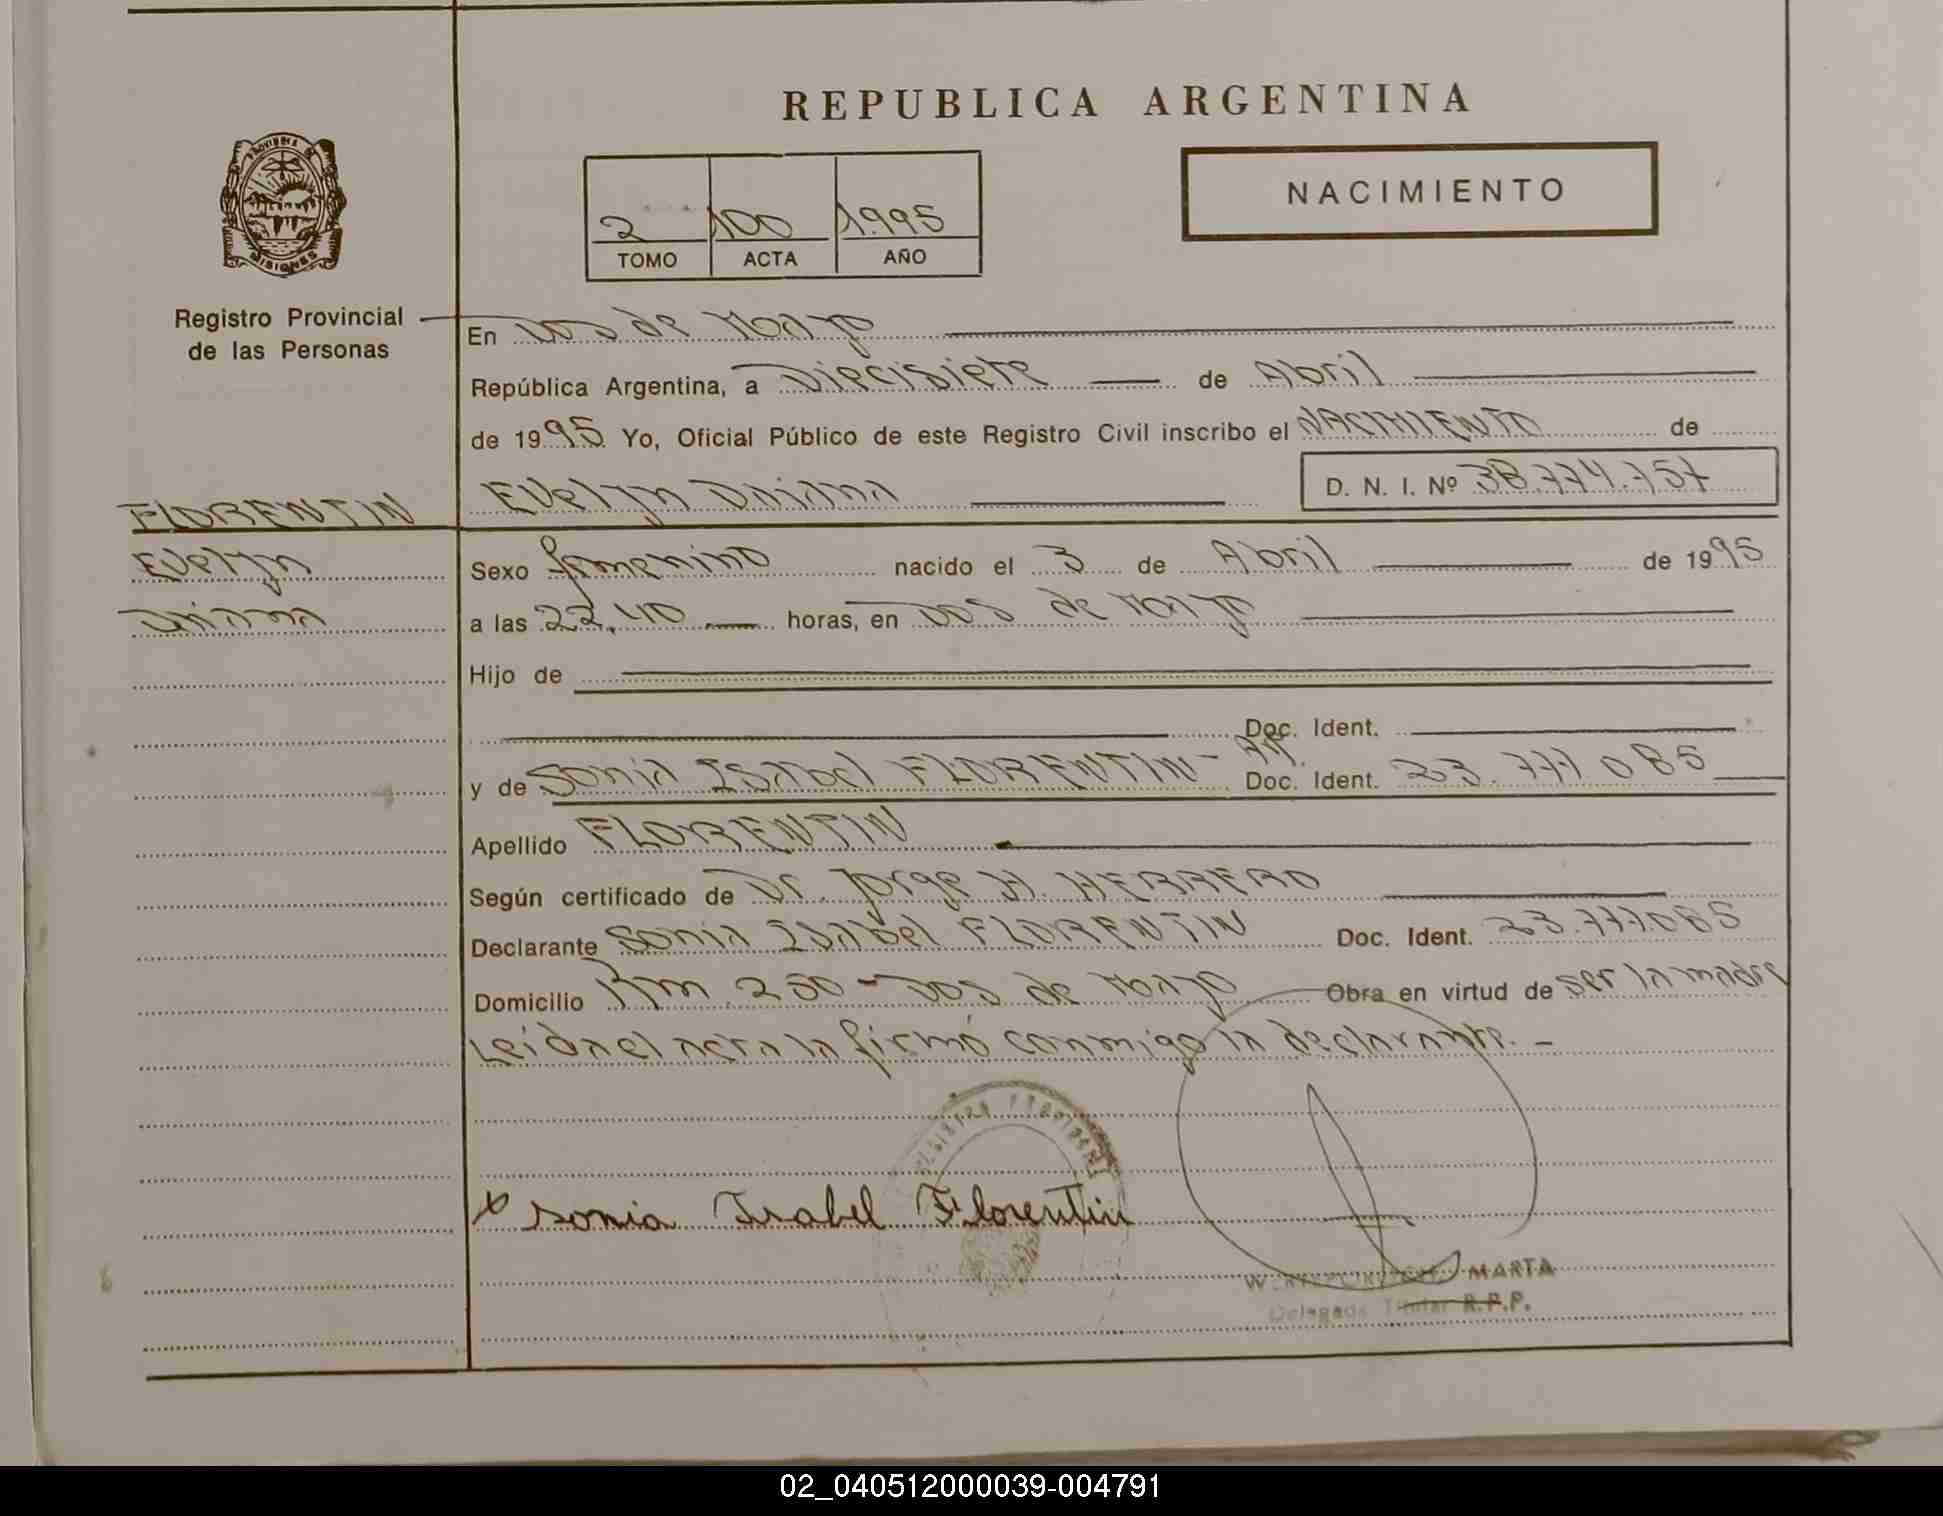 REPUBLICA ARGENTINA
PROVINCIA DE
MISIONES
NACIMIENTO
2 100 1.995
TOMO ACTA AÑO
Registro Provincial
de las Personas
En Dos de Mayo
República Argentina, a Diecisiete de Abril
de 1995 Yo, Oficial Público de este Registro Civil inscribo el NACIMIENTO de
Evelyn Daiana D. N. I. Nº 38.774.757
FLORENTIN
Evelyn
Daiana
Sexo femenino nacido el 3 de Abril de 1995
a las 22,40 horas, en Dos de Mayo
Hijo de
Doc. Ident.
y de Sonia Isabel FLORENTIN - Ar. Doc. Ident. 23.777.085
Apellido FLORENTIN
Según certificado de Dr. Jorge H. HERRERO
Declarante Sonia Isabel FLORENTIN Doc. Ident. 23.777.085
Domicilio Km 250 - Dos de Mayo Obra en virtud de ser la madre
Leida el acta la firmó conmigo la declarante. -
x Sonia Isabel Florentin
MARTA
Delegada Titular R.P.P.
02_040512000039-004791